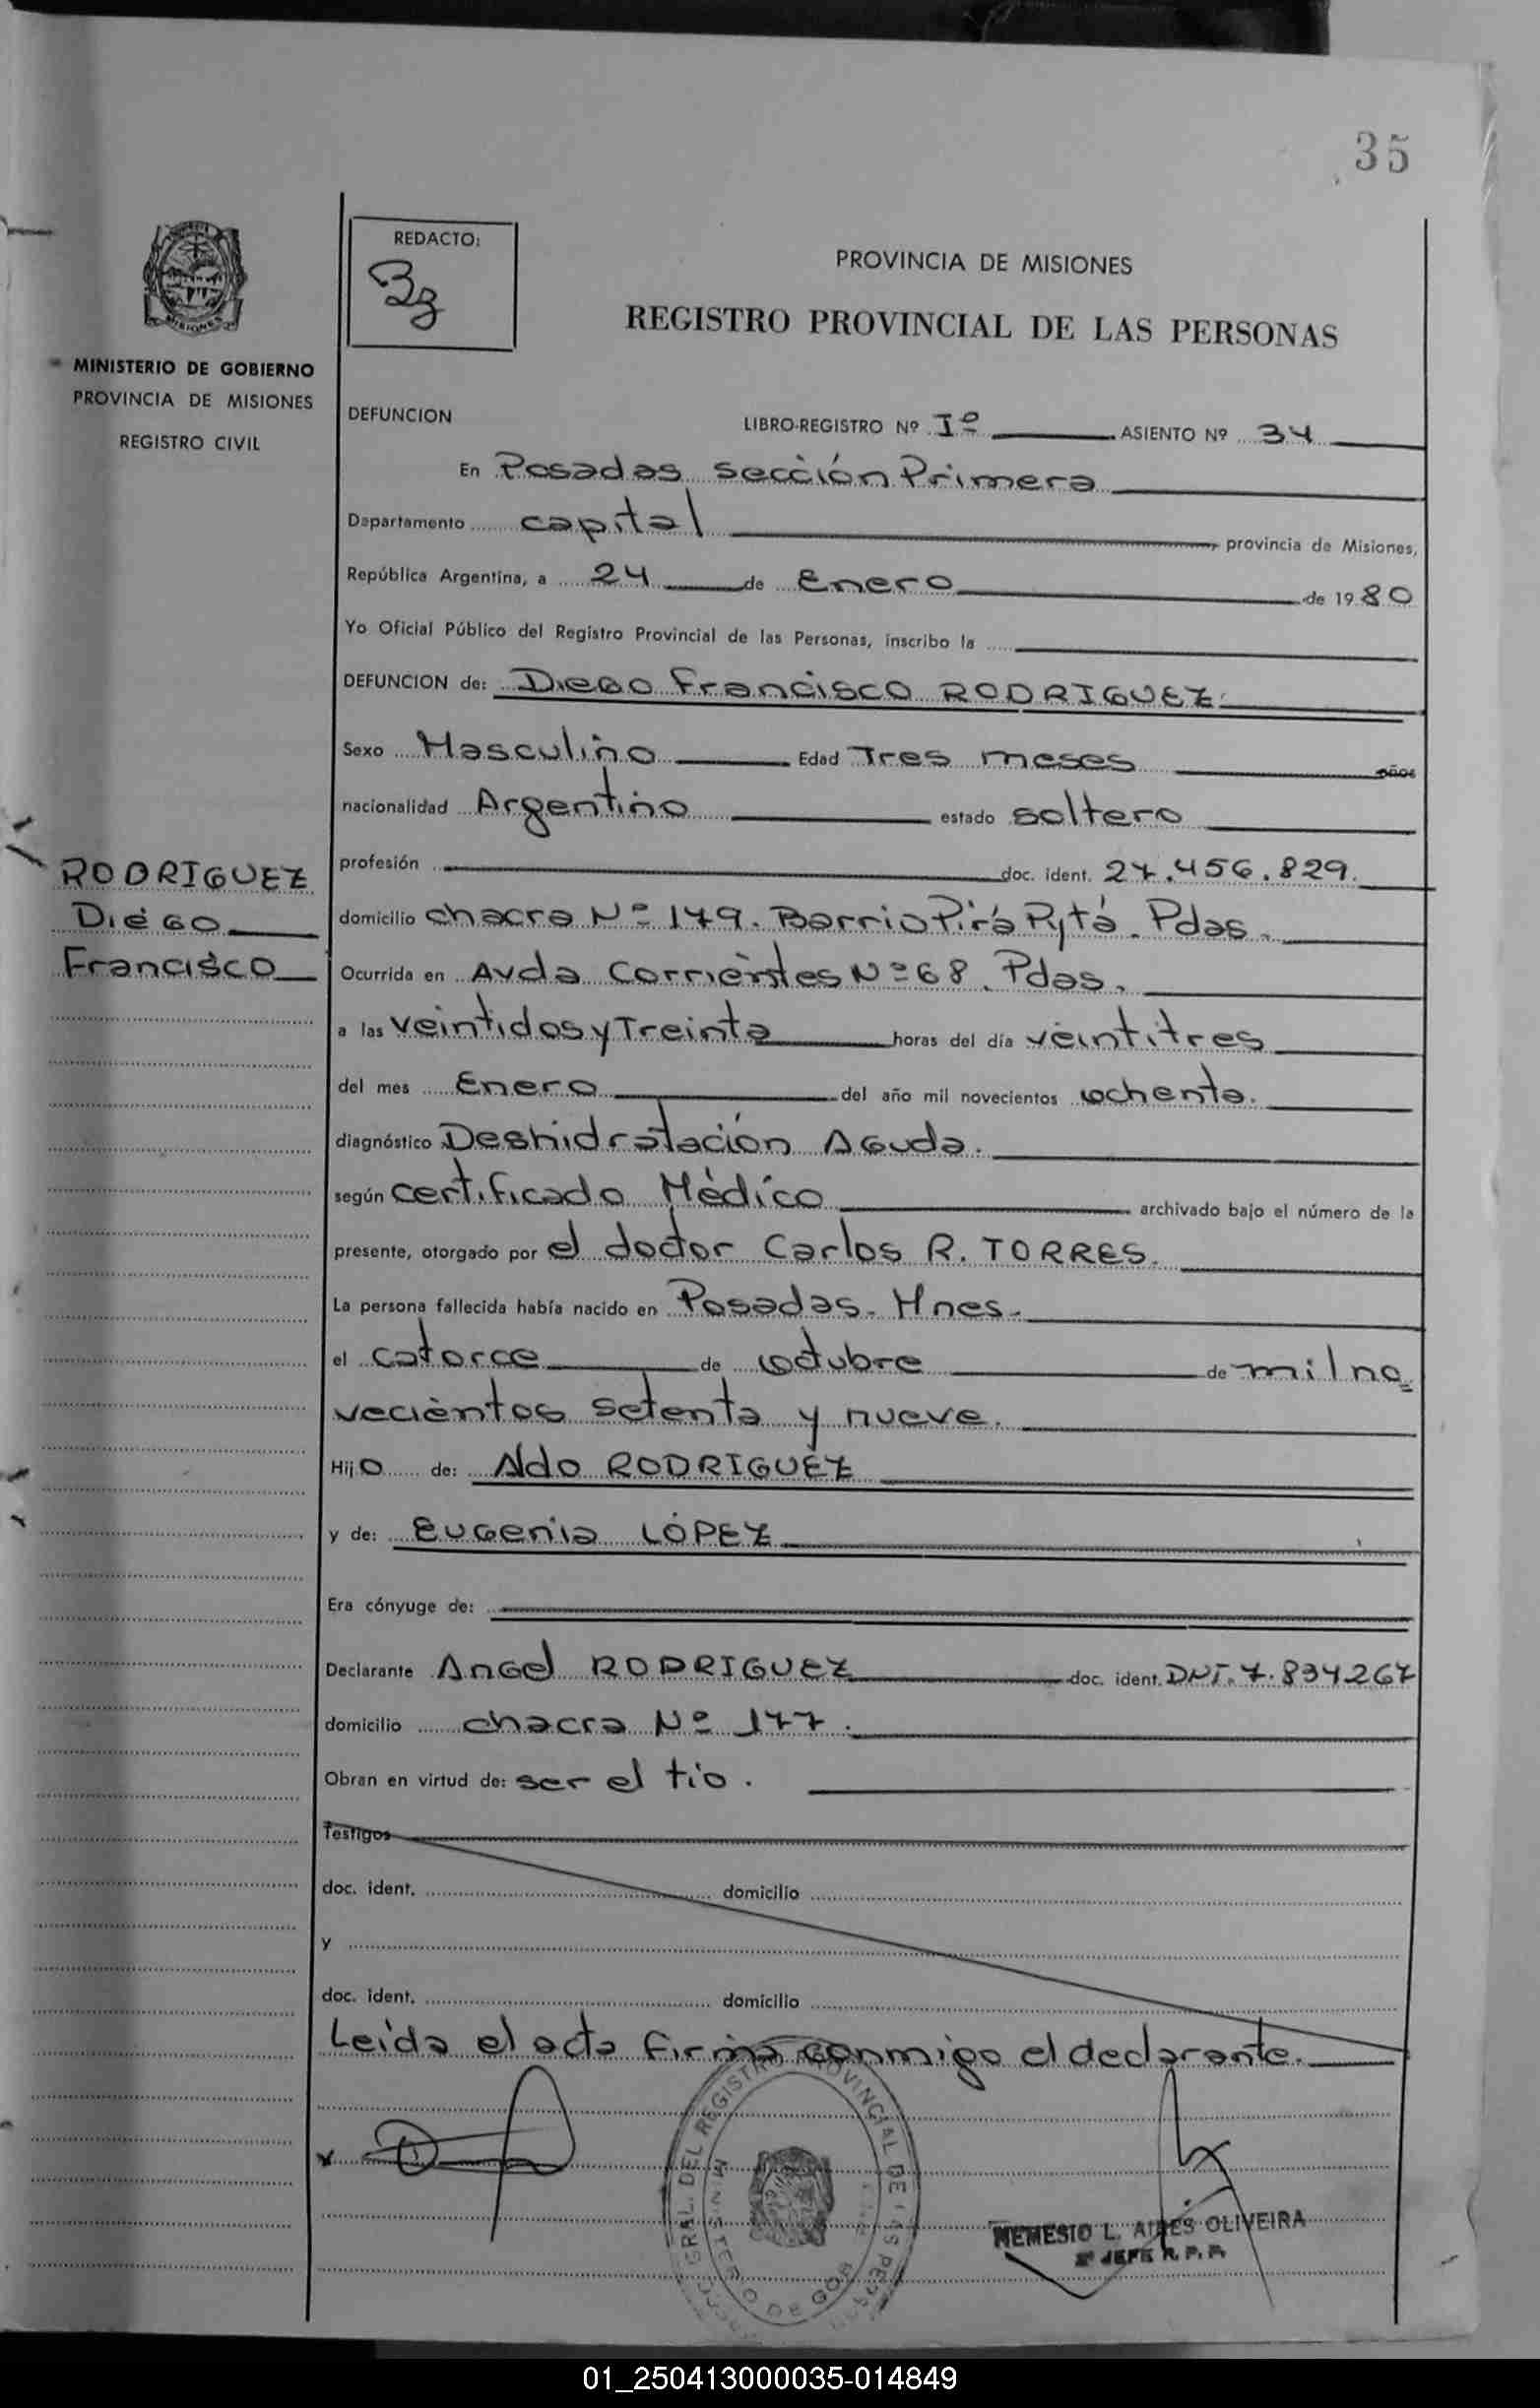 35
REDACTO:
PROVINCIA DE MISIONES
REGISTRO PROVINCIAL DE LAS PERSONAS
MINISTERIO DE GOBIERNO
PROVINCIA DE MISIONES
REGISTRO CIVIL
DEFUNCION LIBRO-REGISTRO Nº Iº ASIENTO Nº 34
En Posadas sección Primera
Departamento capital, provincia de Misiones,
República Argentina, a 24 de Enero de 1980
Yo Oficial Público del Registro Provincial de las Personas, inscribo la
DEFUNCION de: Diego Francisco RODRIGUEZ.
Sexo Masculino Edad Tres meses años
nacionalidad Argentino estado soltero
profesión doc. ident. 27.456.829.
RODRIGUEZ
Diego
Francisco
domicilio chacra Nº 179. Barrio Pirá Pytá. Pdas.
Ocurrida en Avda Corrientes Nº 68. Pdas.
a las veintidos y Treinta horas del día veintitres
del mes Enero del año mil novecientos ochenta.
diagnóstico Deshidratación Aguda.
según certificado Médico archivado bajo el número de la
presente, otorgado por el doctor Carlos R. TORRES.
La persona fallecida había nacido en Posadas - Mnes.
el catorce de octubre de mil no=
vecientos setenta y nueve.
Hijo de: Aldo RODRIGUEZ
y de: Eugenia LÓPEZ
Era cónyuge de:
Declarante Angel RODRIGUEZ doc. ident. DNI. 7.834267
domicilio chacra Nº 177.
Obran en virtud de: ser el tío.
Testigos
doc. ident. domicilio
y
doc. ident. domicilio
Leída el acta firma conmigo el declarante.
GRAL. DEL REGISTRO PROVINCIAL DE LAS PERSONAS
MINISTERIO DE GOB
NEMESIO L. AIRES OLIVEIRA
JEFE R. P. P.
01_250413000035-014849